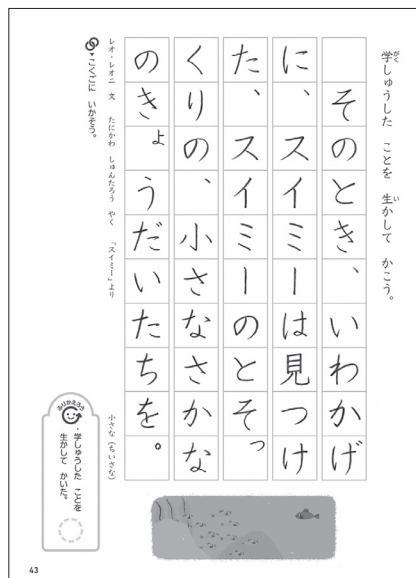 学しゅうした ことを 生かして かこう。
がく
い
そのとき、いわかげ
に、スイミーは見つけ
た、スイミーのとそっ
くりの、小さなさかな
のきょうだいたちを。
小さな(ちいさな)
レオ・レオニ 文 たにかわ しゅんたろう やく 「スイミー」より
こくごに いかそう。
ふりかえろう
・学しゅうした ことを
生かして かいた。
43